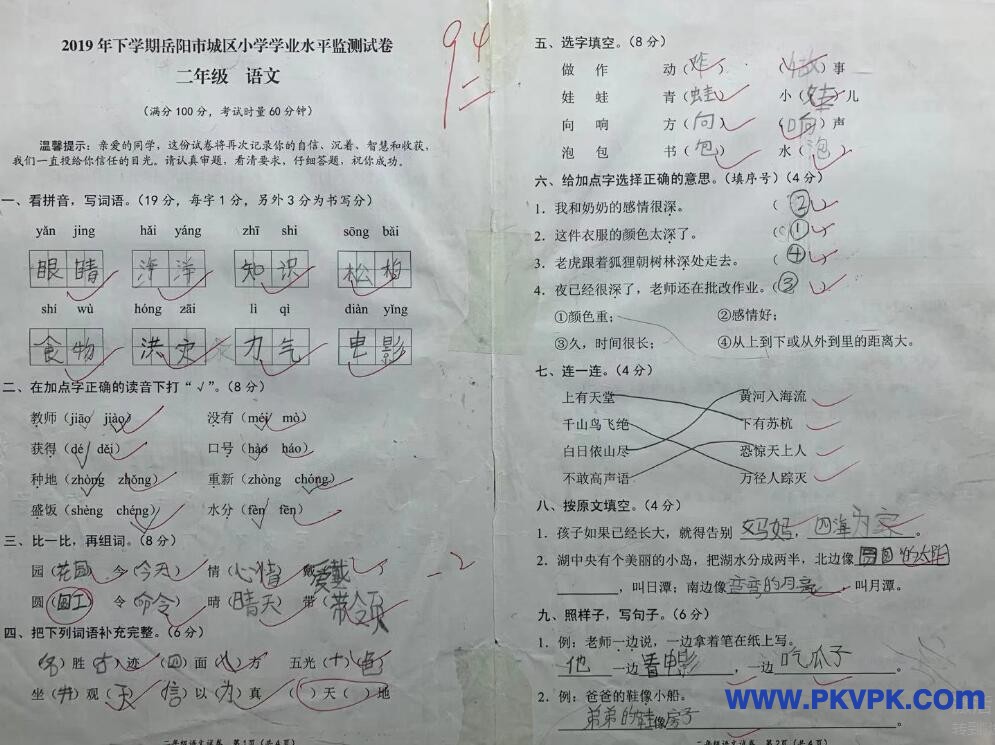 2019年下学期岳阳市城区小学学业水平监测试卷
二年级 语文
（满分100分，考试时量60分钟）
温馨提示：亲爱的同学，这份试卷将再次记录你的自信、沉着、智慧和收获，
我们一直投给你信任的目光。请认真审题，看清要求，仔细答题，祝你成功。
一、看拼音，写词语。（19分，每字1分，另外3分为书写分）
yǎn jing hǎi yáng zhī shi sōng bǎi
眼睛 海洋 知识 松柏
shí wù hóng zāi lì qi diàn yǐng
食物 洪灾 力气 电影
二、在加点字正确的读音下打“√”。（8分）
教师（jiāo jiào） 没有（méi mò）
获得（dé děi） 口号（hào háo）
种地（zhòng zhǒng） 重新（zhòng chóng）
盛饭（shèng chéng） 水分（fèn fēn）
三、比一比，再组词。（8分）
园（花园） 今（今天） 情（心情） 戴（爱戴）
圆（圆工） 令（命令） 晴（晴天） 带（带领）
四、把下列词语补充完整。（6分）
（名）胜（古）迹 （四）面（八）方 五光（十）（色）
坐（井）观（天） （信）以（为）真 （ ）天（ ）地
二年级语文试卷 第1页（共4页）
94
-2
五、选字填空。（8分）
做 作 动（作） （做）事
娃 蛙 青（蛙） 小（娃）儿
向 响 方（向） （响）声
泡 包 书（包） 水（泡）
六、给加点字选择正确的意思。（填序号）（4分）
1．我和奶奶的感情很深。 （②）
2．这件衣服的颜色太深了。 （①）
3．老虎跟着狐狸朝树林深处走去。 （④）
4．夜已经很深了，老师还在批改作业。（③）
①颜色重； ②感情好；
③久，时间很长； ④从上到下或从外到里的距离大。
七、连一连。（4分）
上有天堂 黄河入海流
千山鸟飞绝 下有苏杭
白日依山尽 恐惊天上人
不敢高声语 万径人踪灭
八、按原文填空。（4分）
1．孩子如果已经长大，就得告别 妈妈，四海为家
2．湖中央有个美丽的小岛，把湖水分成两半，北边像圆圆的太阳
，叫日潭；南边像弯弯的月亮，叫月潭。
九、照样子，写句子。（6分）
1．例：老师一边说，一边拿着笔在纸上写。
他 一边看电影，一边吃瓜子。
2．例：爸爸的鞋像小船。
弟弟的鞋像房子。
二年级语文试卷 第2页（共4页）
www.PKVPK.com